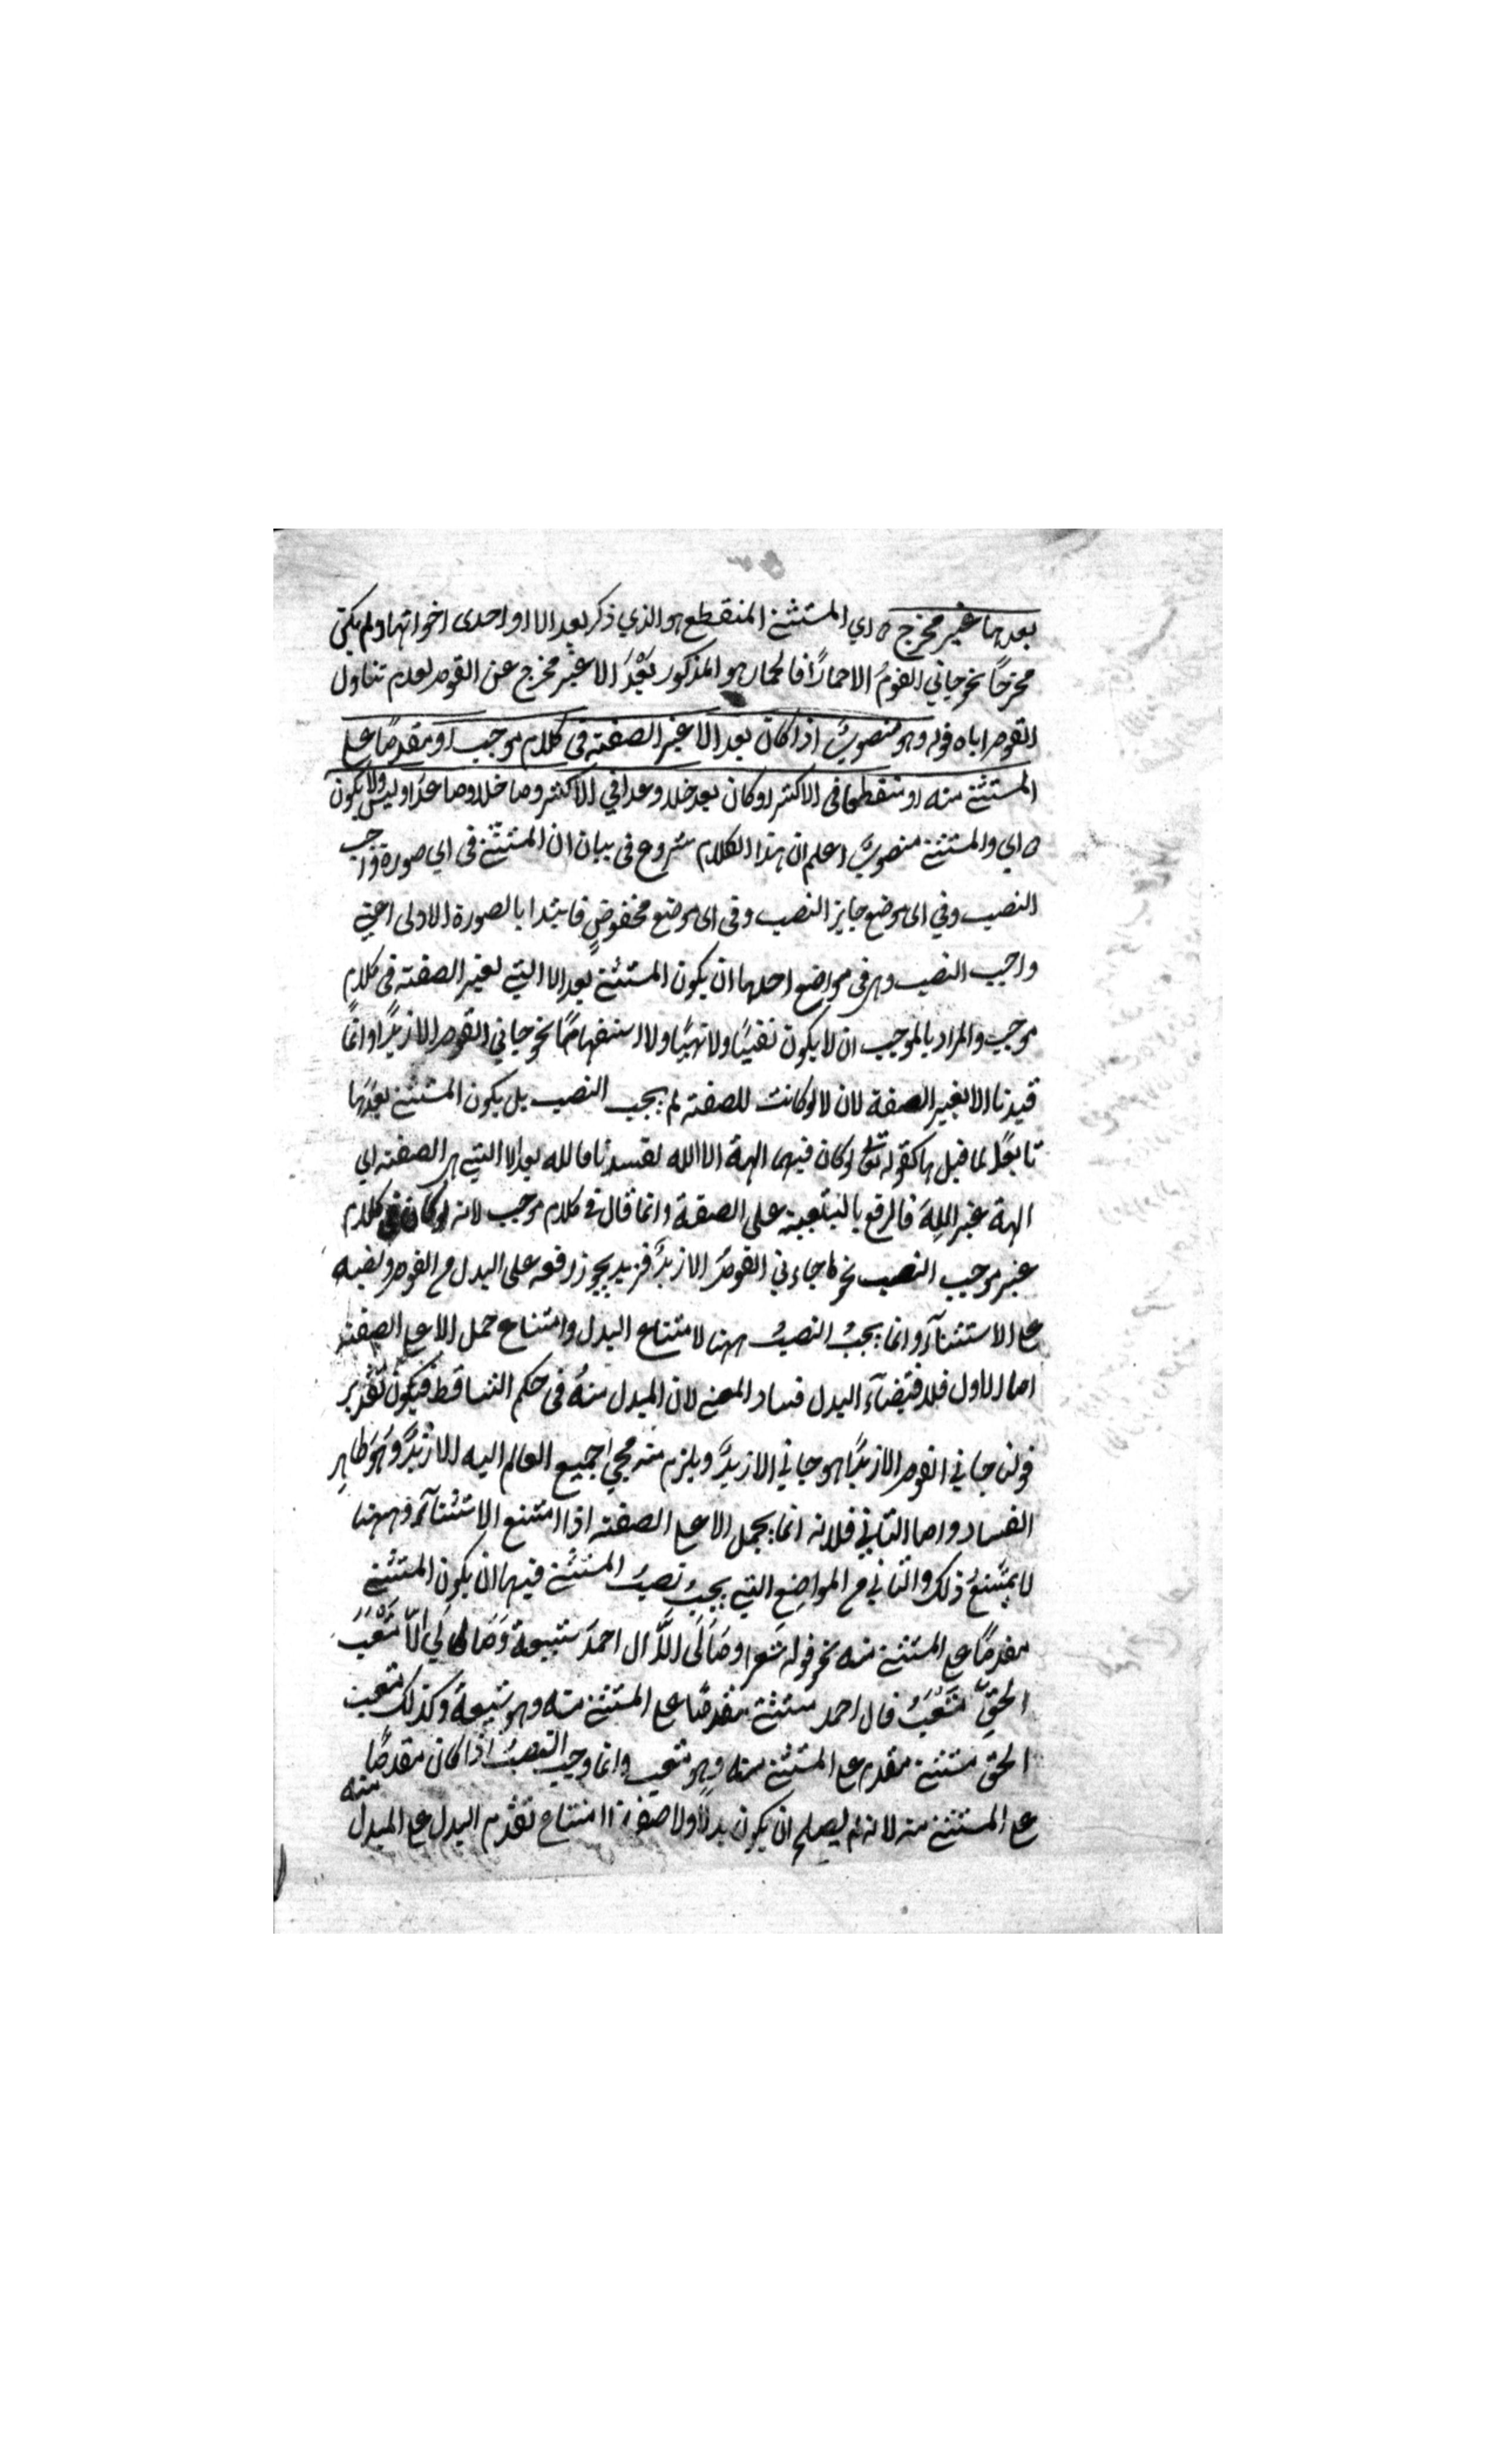 بعدها غير مخرج ه اي المستثنى المنقطع هو الذي ذكر بعد الا او احدى اخواتها ولم يكن
مخرجًا نحو جاني القومُ الا حمارًا فالحمار هو المذكور بَعْدَ الا غير مخرج عن القوم لعدم تناول
القوم اياه قوله وهو منصوبٌ اذا كان بعد الا غير الصفته في كلام موجب او مقدمًا على
المستثنى منه او منقطعا في الاكثر او كان بعد خلا وعدا في الاكثر وما خلا وما عدا وليس ولا يكون
ه اي والمستثنى منصوبٌ اعلم ان هذا الكلام شروع في بيان ان المستثنى في اي صورة واجب
النصب وفي اى موضع جايز النصب وفى اى موضع مخفوضٍ فابتدا بالصورة الاولى اعني
واجب النصب وهى في مواضع احدها ان يكون المستثنى بعد الا التي لغير الصفته في كلام
موجب والمراد بالموجب ان لا يكون نفيًا ولا نهيًا ولا استفهامًا نحو جاني القوم الا زيدًا وانما
قيدنا الا بغير الصفة لان لا لوكانت للصفته لم يجب النصب بل يكون المستثنى بعدَها
تابعًا لما قبلها كقوله تع لوكان فيهما الهة الا الله لفسدتا فالله بعد الا التي هى الصفته اي
الهة غير اللهِ فالرفع بالتبعية على الصفة وانما قال في كلام موجب لانه لو كان في كلام
غير موجب النصب نحو ما جاءنى القومُ الا زيدٌ فزيد يجوز رفعه على البدل من القوم ونصبه
على الاستثنآء وانما يجبُ النصبُ ههنا لامتناع البدل وامتناع حمل الا على الصفته
اما الاول فلاقتضآء البدل فساد المعنى لان المبدل منهُ في حكم التساقط فيكونُ تقدير
قولن جاني القوم الا زيدًا هو جاني الا زيدٌ ويلزم منه مجي جميع العالم اليه الا زيدٌ وهُوَ ظاهر
الفساد واما الثاني فلانه انما يحمل الا على الصفته اذا امتنع الاستثنآء وههنا
لا يمتَنعُ ذلك والثاني من المواضِع التي يجبُ نصبُ المستثنى فيها ان يكون المستثنى
مقدمًا على المستثنى منه نحو قوله شعر وَمَا لَى الَّا ال احمدَ شيعةٌ وَمَا لِي الَّا مَشْعَبَ
الحقِّ مَشْعَبُ فال احمد مستثنى مقدمًا على المستثنى منه وهو شيعةٌ وكذلك مشعب
الحق مستثنى مقدم على المستثنى منه وهو مشعب وانما وجب النصبُ اذا كان مقدمًا
على المستثنى منه لانه لم يصلح ان يكون بدلًا ولا صفة امتناع تقدم البدل على المبدل منه